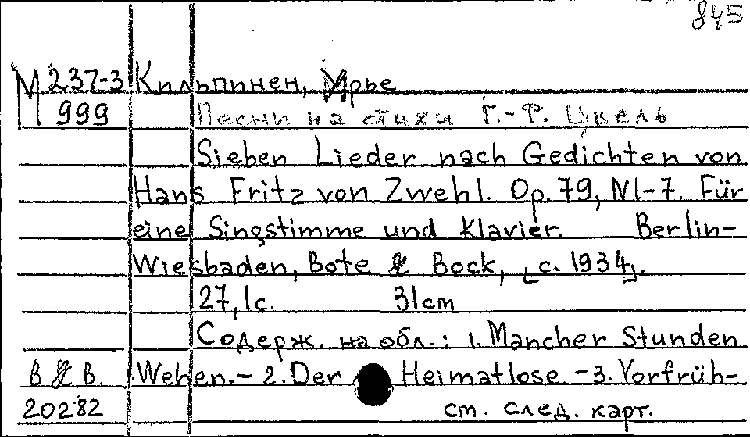 845
М 237-3 Кильпинен, Урье
999 Песни на стихи Г.-Ф. Цвель
Sieben Lieder nach Gedichten von
Hans Fritz von Zwehl. Op. 79, N1-7. Für
eine Singstimme und Klavier. Berlin-
Wiesbaden, Bote & Bock, [c. 1934].
27, 1c. 31cm
Содерж. на обл.: 1. Mancher Stunden
B & B. Wehen.- 2. Der Heimatlose. -3. Vorfrüh-
20282 см. след. карт.